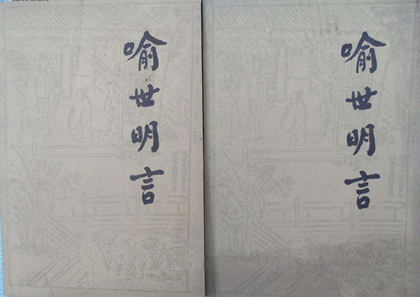 喻世明言
喻世明言